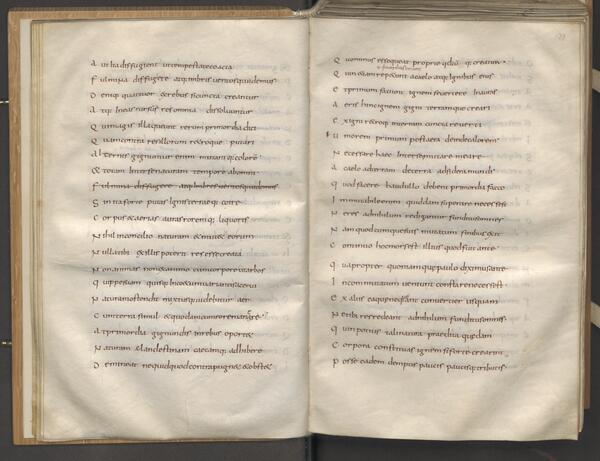 Aut ita diffugient ut tempestate coacta
Fulmina diffugere atq; imbris ventosq; uidemus
Deniq; quattuor ex rebus si cuncta creantur
Atq; in eas rursus res omnia dissoluuntur
Qui magis illa queunt rerum primordia dici
Quam contra res illorum retroq; putari
Alternis gignuntur enim mutantq; colore
& totam inter se naturam tempore ab omni
Fulmina diffugere atq; imbres uentosq; uidemus
Sin ita forte putas ignis terraeq; coire
Corpus & aerias auras roremq; liquoris
Nihil in concilio naturam ut mutet eorum
Nulla tibi ex illis poterit res esse creata
Non animans non exanimo cum corpore ut arbos
Quippe suam quicq; in coetu uariantis acerui
Naturam ostendet mixtusq; uidebitur aer
Cum terra simul & quodam cum rore manere
At primordia gignundis in rebus oportet
Naturam clandestinam caecamq; adhibere
Emineat nequid quod contra pugnet & obstet
Quominus esse queat proprie quodcumq; creatur
Quin etiam repetunt a caelo atq; ignibus eius
Et primum faciunt ignem se uertere in auras
Hinc imbrem gigni terramq; creari
Ex igni retroq; in terram cuncta reuerti
Umorem primum post aera deinde calorem
Necessare haec inter se mutare meare
A caelo ad terram de terra ad sidera mundi
Quod facere haud ullo debent primordia pacto
Immutabile enim quiddam superare necesse est
Ne res ad nihilum redigantur funditus omnes
Nam quodcumq; suis mutatum finibus exit
Continuo hoc mors est illius quod fuit ante
Quapropter quoniam quae paulo diximus ante
In commutatum ueniunt constare necesse est
Ex aliis ea quae nequeant conuertier usquam
Ne tibi res redeant ad nihilum funditus omnis
Quin potius tali natura praedita quaedam
Corpora constituas ignem si forte crearint
Posse eadem demptis paucis paucisq; tributis